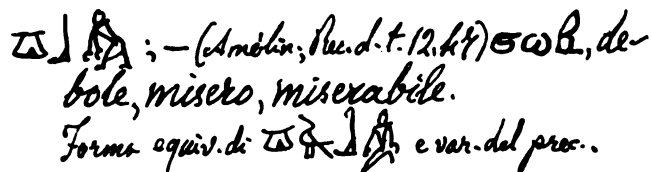 𓎼𓃀 ; — (Amélin; Rec. d. t. 12. ϭⲱⲃ, de-
bole, misero, miserabile.
Forma equiv. di 𓎼𓄿𓃀 e var. del prec..